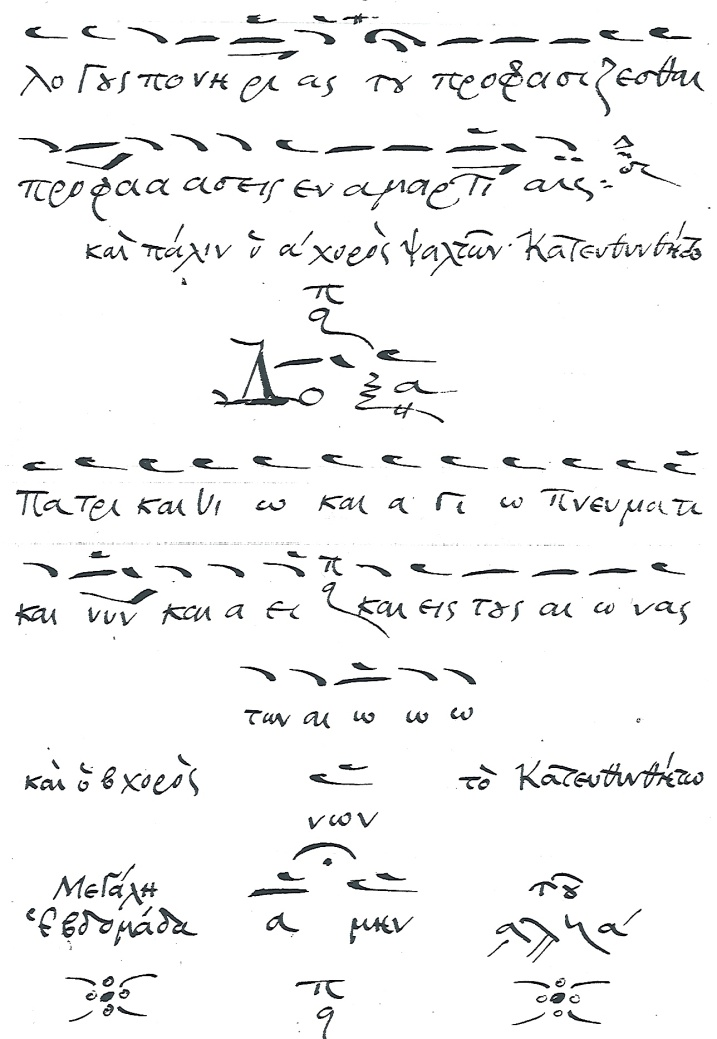 λο γꙋς πο νη ρι ας τꙋ προφασιζεσθαι
προφαα ασεις εν αμαρτι αις
καὶ πάλιν ὁ α΄ χορὸς ψαλτῶν· Κατευθυνθήτω
π
q
Δο ξα
Πα τρι και Υι ω και α γι ω Πνευματι
και νυν και α ει π q και εις τꙋς αι ω νας
των αι ω ω ω
καὶ ὁ β χορὸς τὸ Κατευθυνθήτω
νων
Μεγάλη τꙋ
Ἑβδομάδα α μην
π
q